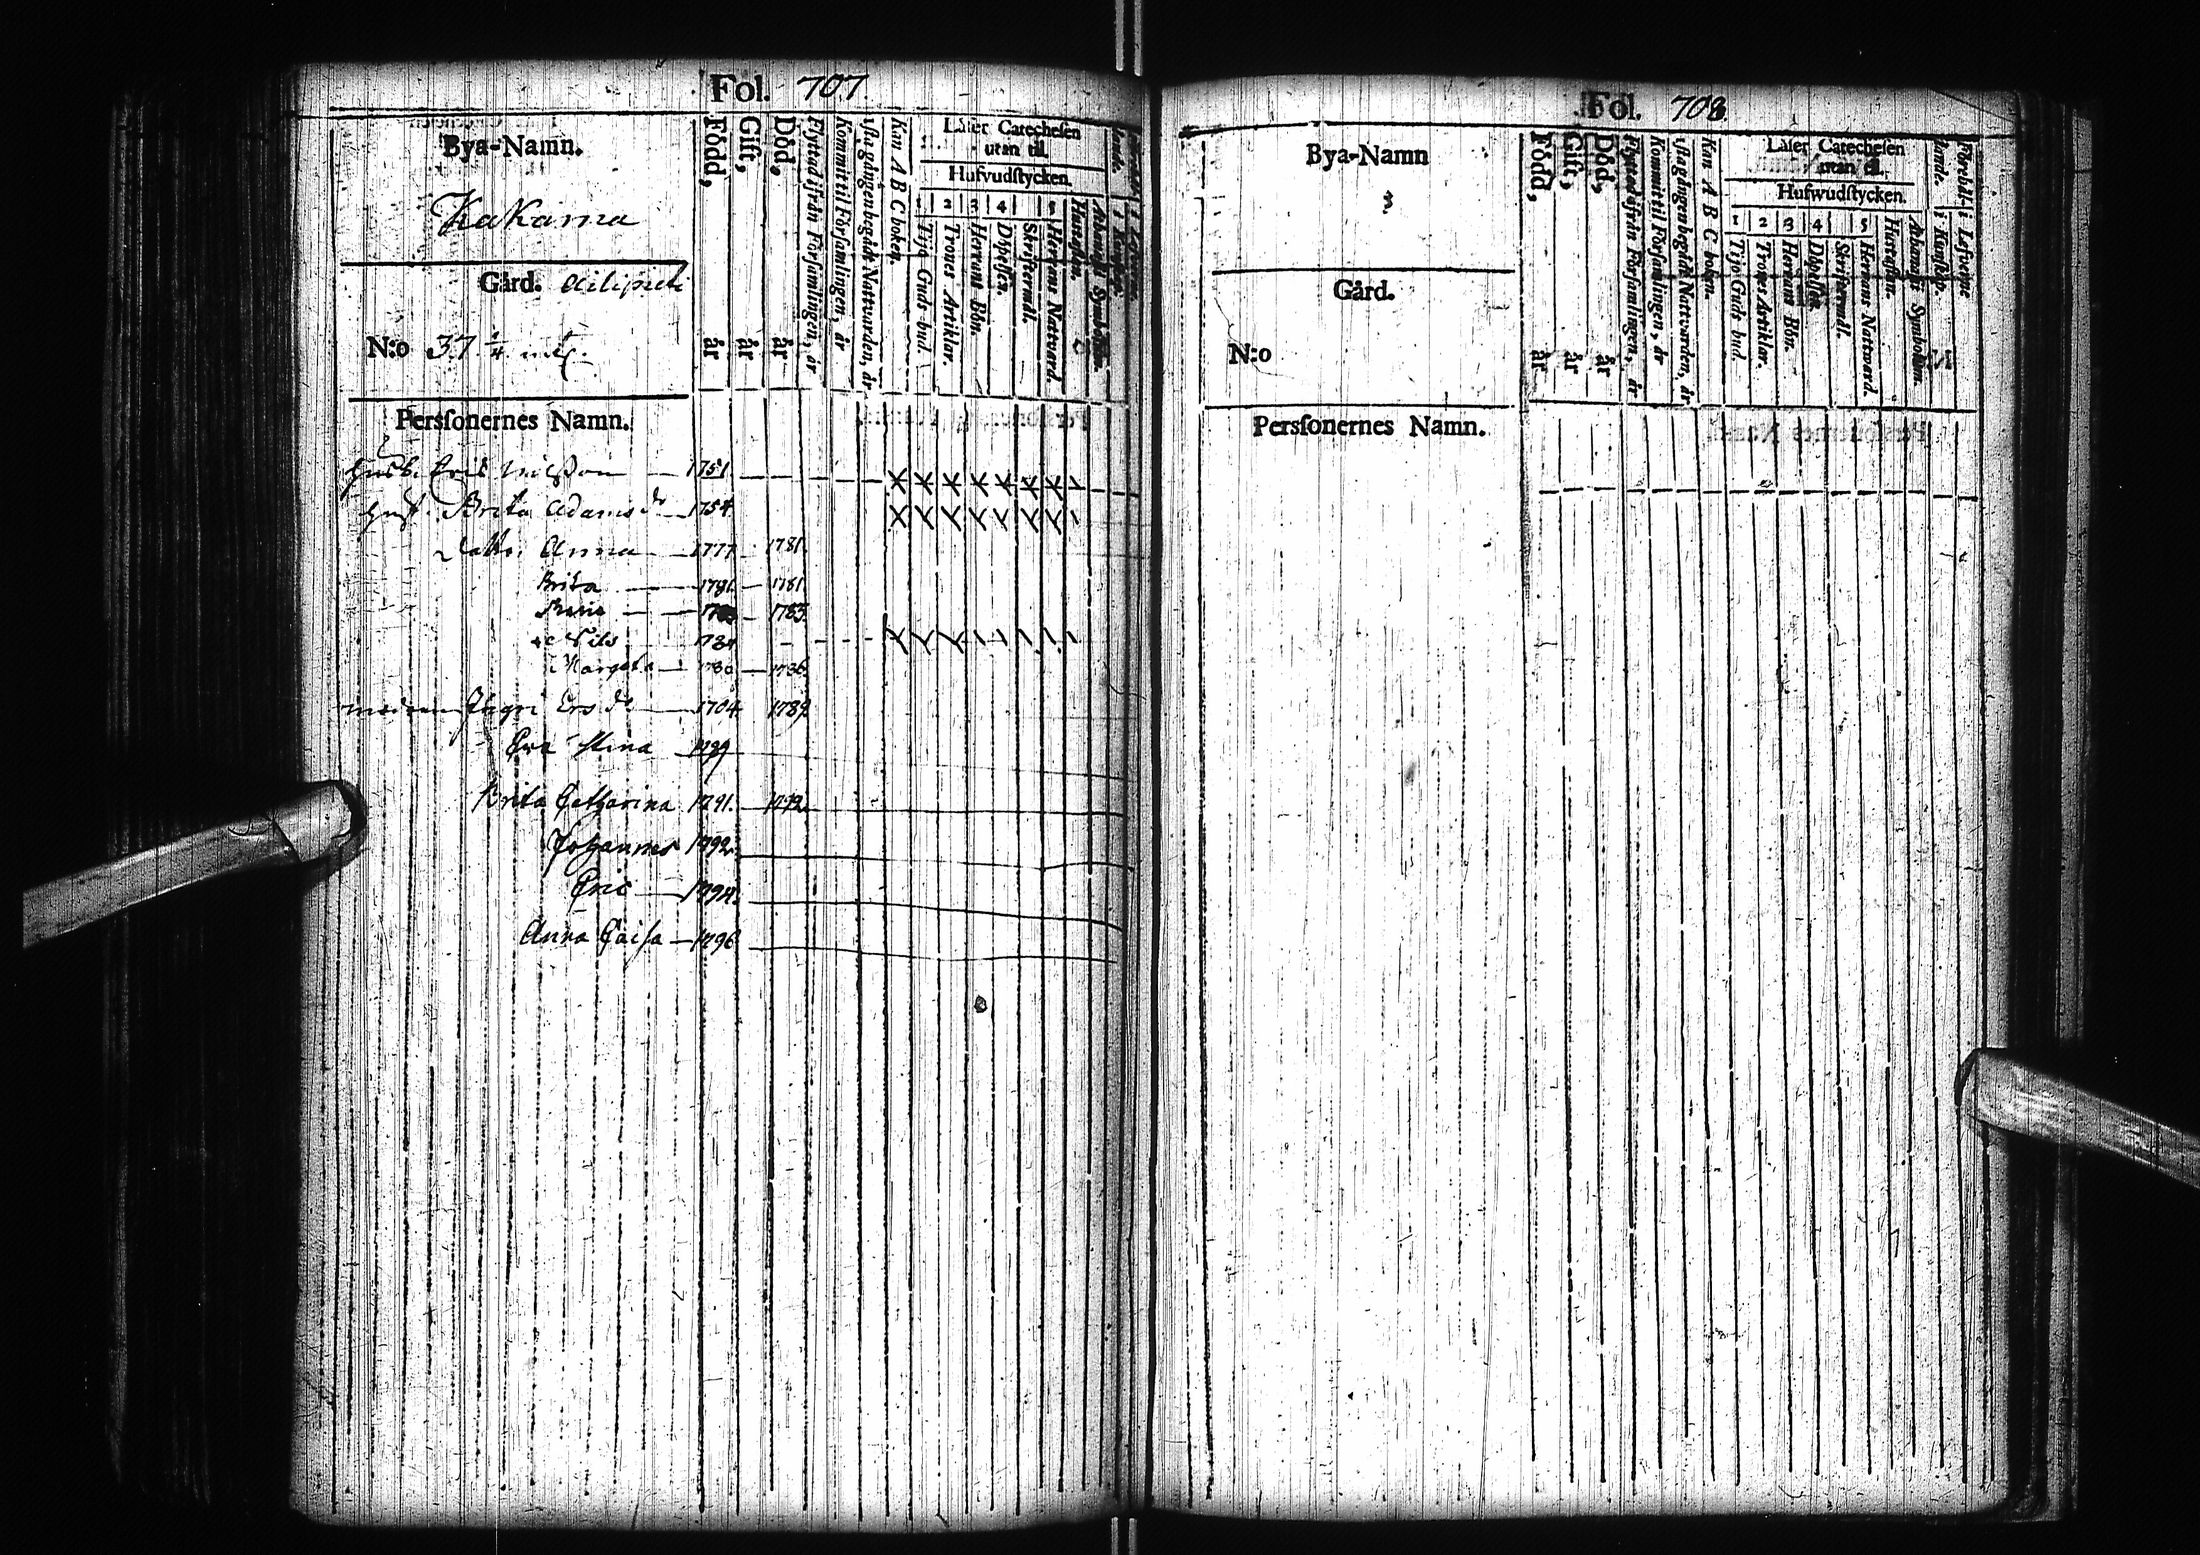 Fol. 707
Bya-Namn.
Kakama
Gård. Ailipieti
N:o 37. 1/4 mtl.
Född, år
Gift, år
Död, år
Flyttad ifrån Församlingen, år
Kommit til Församlingen, år
1sta gången begådt Nattvarden, år
Kan A B C boken.
Läser Catechesen
utan til.
Hufvudstycken.
1 2 3 4 5
Tijo Guds bud.
Trones Artiklar.
Herrans Bön.
Döpelsen.
Skriftermål.
Herrans Natvard.
Hustaflan.
Athanasii Symbolum.
Perssonernes Namn.
Husb. Eric Nilsson 1751.
Hust. Brita Adamsdr 1754.
Dottr. Anna 1777 1781.
Brita 1781. 1781
Maria 1783.
Nils 1784
Margeta 1780 1786.
Ers dr 1704 1789.
Eva Stina 1789
Brita Catharina 1791. 1792.
Johannes 1792.
Eric 1794.
Anna Caisa 1796
Fol. 708.
Bya-Namn
Gård.
N:o
Född, år
Gift, år
Död, år
Flyttad ifrån Församlingen, år
Kommit til Församlingen, år
1sta gången begådt Nattvarden, år
Kan A B C boken.
Läser Catechesen
utan til.
Hufwudstycken.
1 2 3 4 5
Tijo Guds bud.
Trones Artiklar.
Herrans Bön.
Döpelsen.
Skriftermål.
Herrans Nattward.
Hustaflan.
Athanasii Symbolum.
Förehållande. i Kunskap.
i Lefverne
Perssonernes Namn.